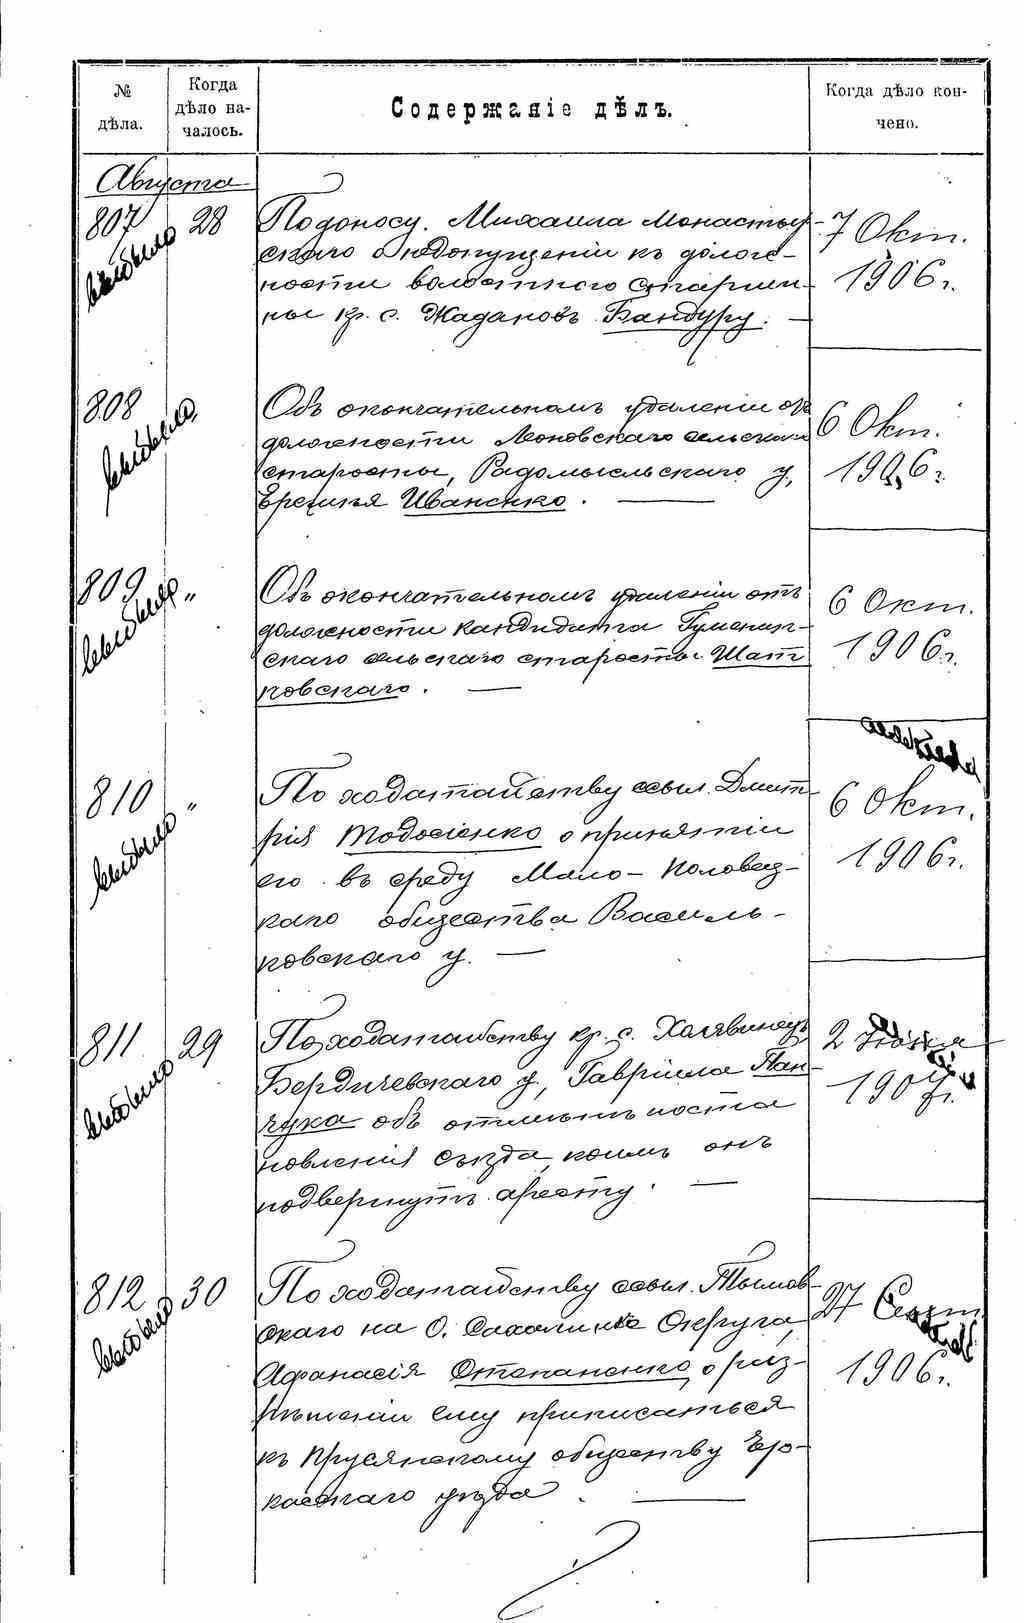 № дѣла.
Когда дѣло началось.
Содержаніе дѣлъ.
Когда дѣло кончено.
Августа
807 28 По доносу Михаила Монастыр- 7 Окт.
скаго о недопущеніи къ долж- 1906 г.
ности волостного старши-
ны кр. с. Жадановъ Бандуру. —
выбыло
808 Объ окончательномъ удаленіи отъ 6 Окт.
должности Леоновскаго сельскаго
старосты, Радомысльскаго у, 1906 г.
Еремія Иваненко. —
выбыло
809 „ Объ окончательномъ удаленіи отъ 6 Окт.
должности кандидата
скаго сельскаго старосты Шат- 1906 г.
ковскаго. —
выбыло
810 „ По ходатайству ссыл. Дмит- 6 Окт.
рія Тодосіенко о принятіи
его въ среду Мало-Половец- 1906 г.
каго общества Василь-
ковскаго у. —
выбыло
811 29 По ходатайству кр. с. Халявинец, 2
Бердичевскаго у, Гавріила Пан- 1907 г.
чука объ отмѣнѣ поста
новленія Съѣзда, коимъ онъ
подвергнутъ аресту. —
выбыло
812 30 По ходатайству ссыл. Тымов- 27 Сент.
скаго на О. Сахалинѣ Округа,
Афанасія Степаненко, о раз- 1906 г.
рѣшеніи ему приписаться
къ Прусянскому обществу Чер-
касскаго уѣзда. —
выбыло